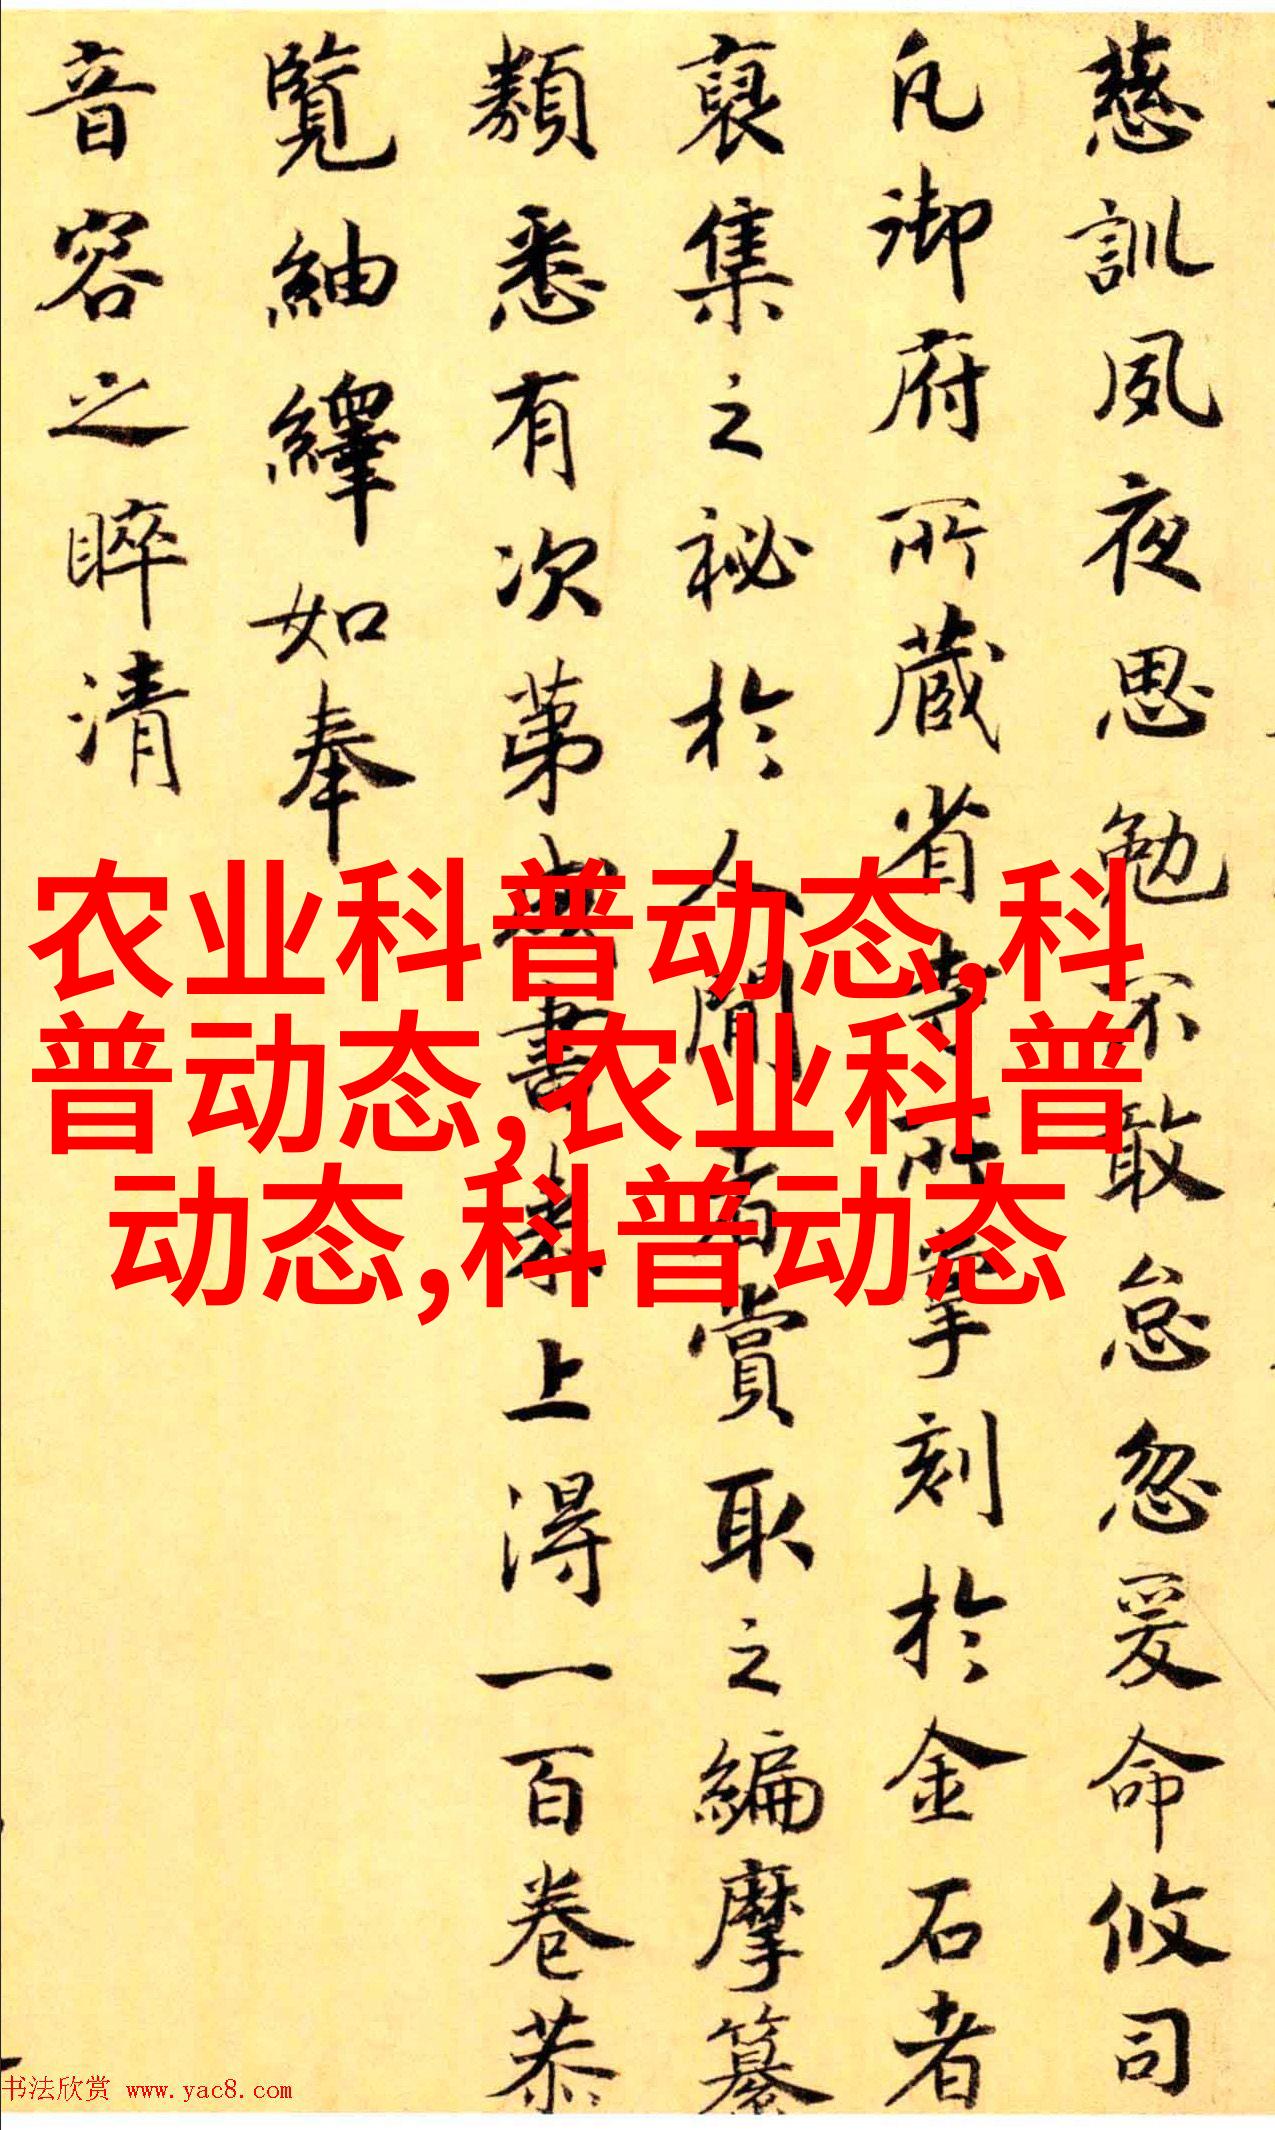 慈訓夙夜思勉不敢怠忽爰命攸司
凡御府所蔵省寺所掌刻於金石者
裒集之祕於人間者賞取之編摩纂
類悉有次第書上得一百卷恭
覽紬繹如奉
音容之睟清
农业科普动态,科
普动态,农业科普
动态,科普动态
书法欣赏 www.yac8.com